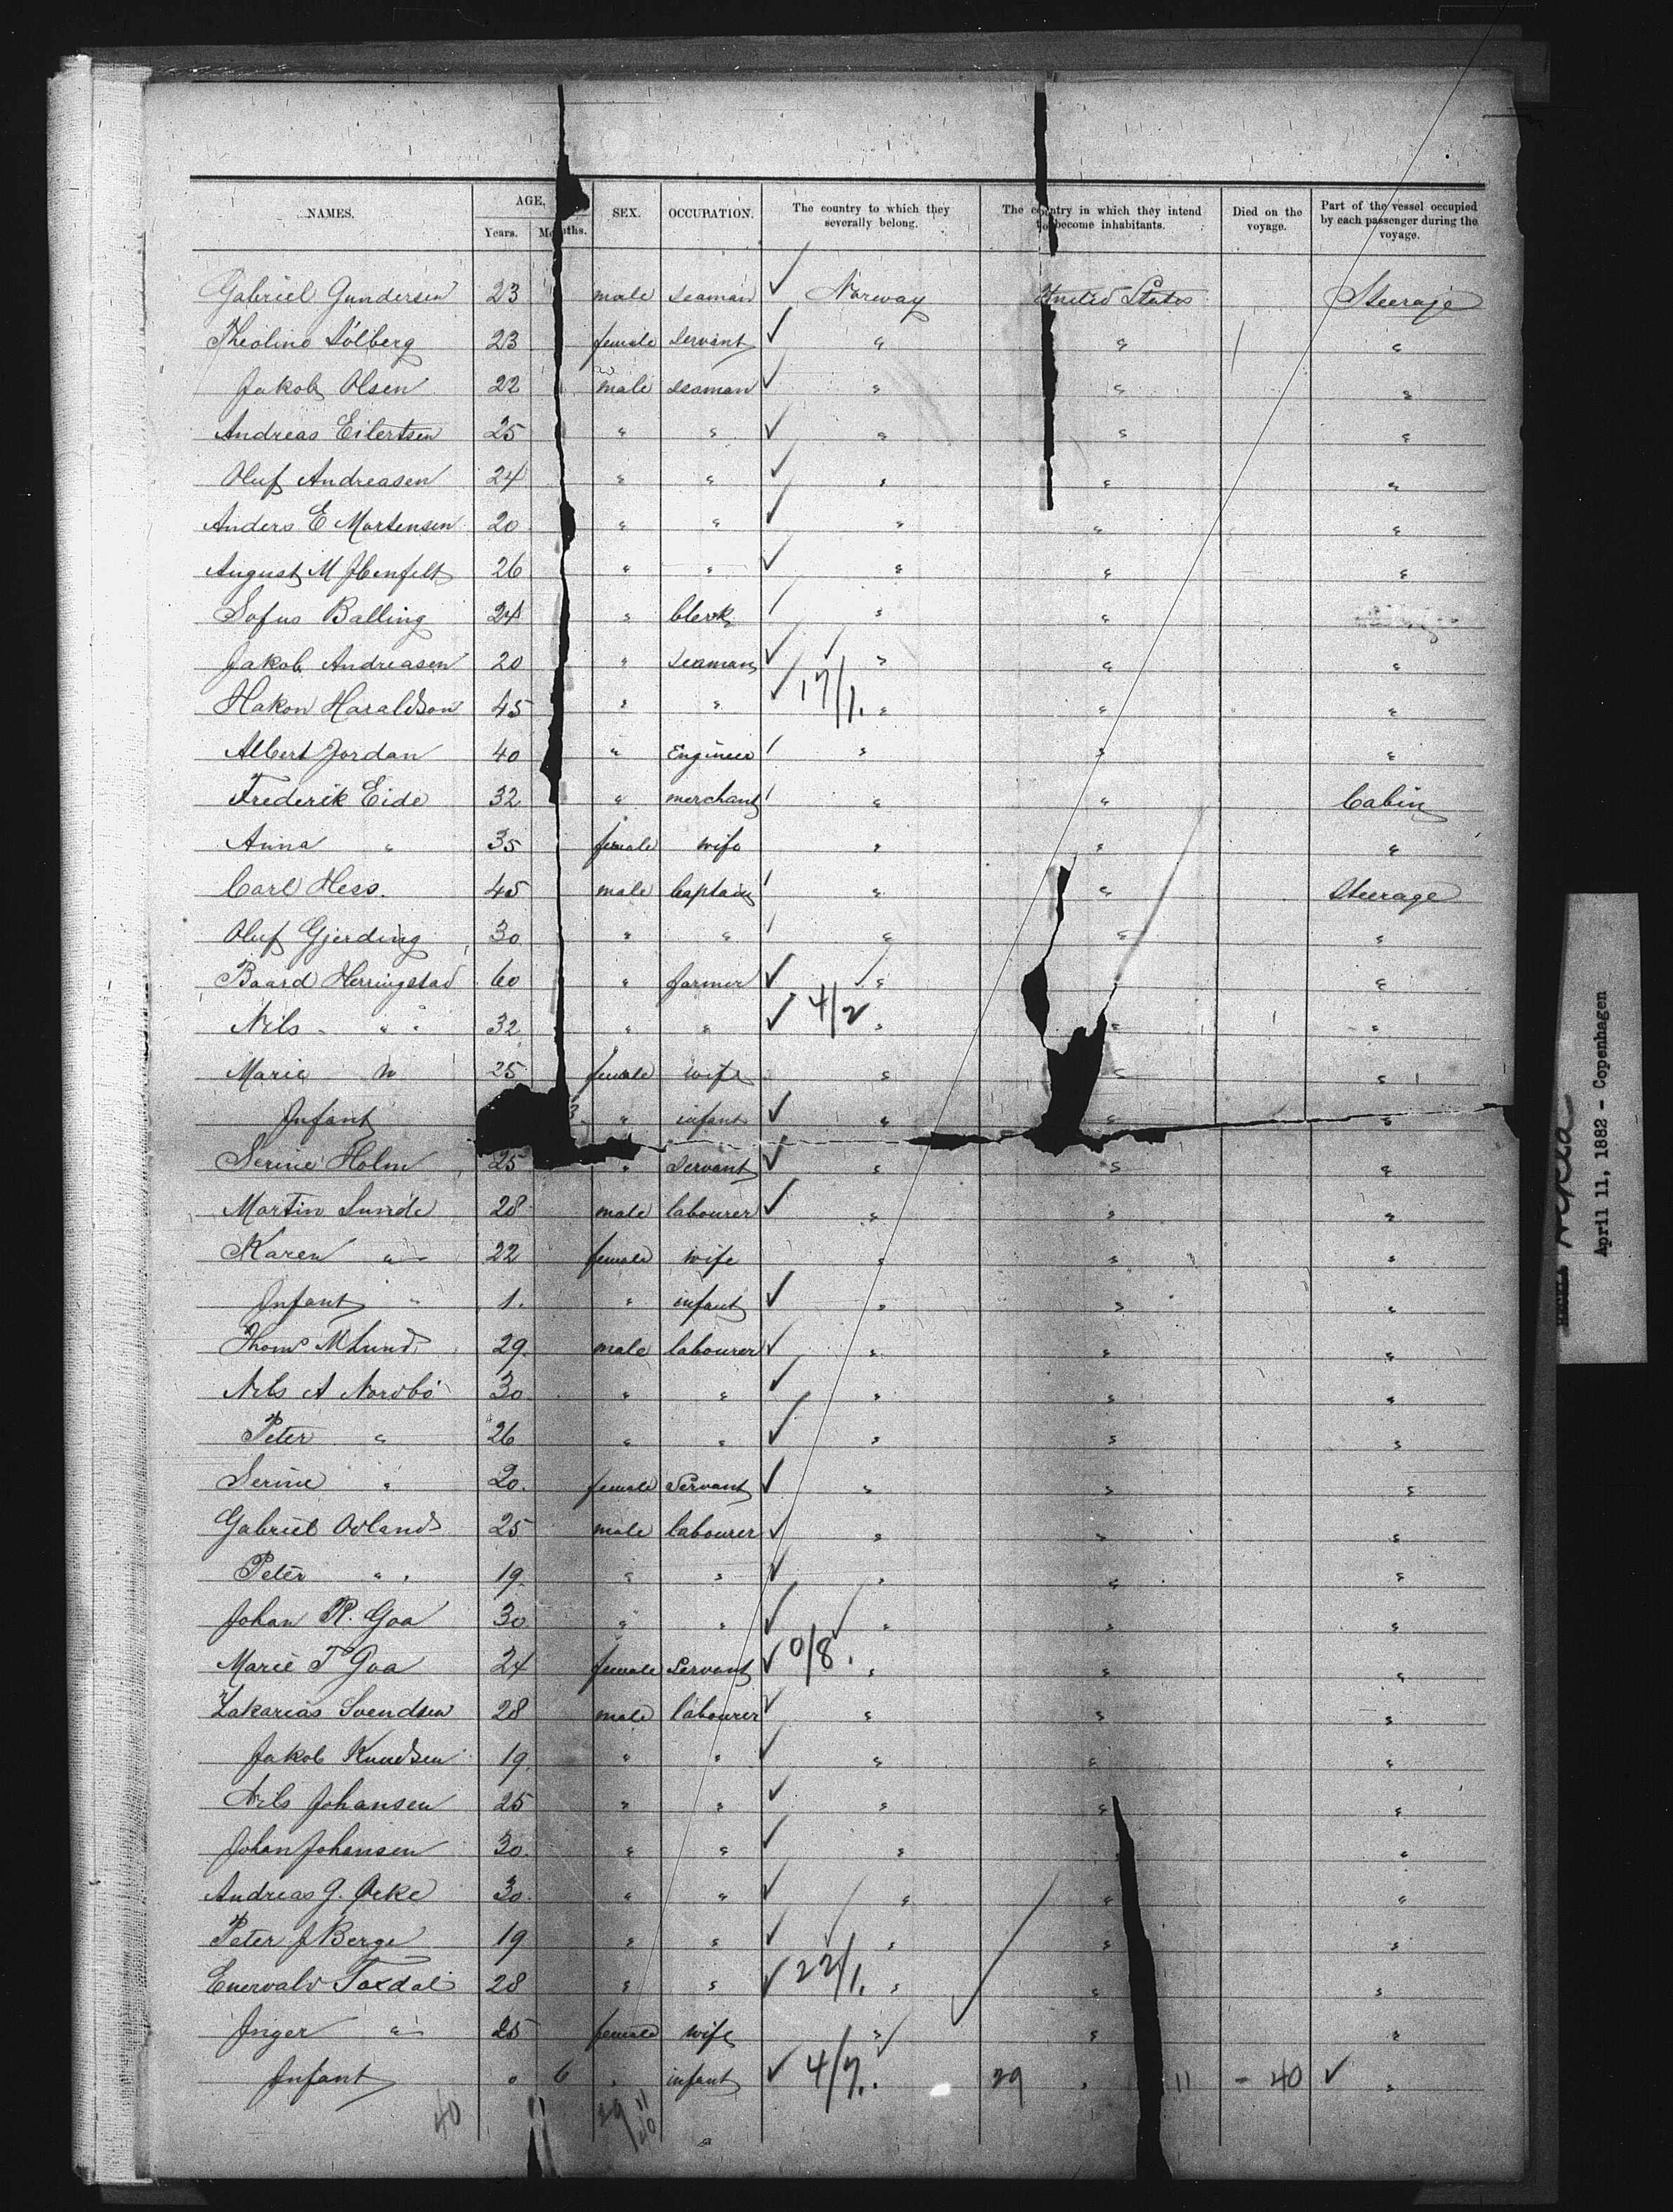 NAMES. AGE, Years. Months. SEX. OCCUPATION. The country to which they severally belong. The country in which they intend to become inhabitants. Died on the voyage. Part of the vessel occupied by each passenger during the voyage.
Gabriel Gundersen 23 male seaman ✓ Norway United States Steerage
Theoline Sölberg 23 female servant ✓ " " "
Jakob Olsen 22 male seaman ✓ " " "
Andreas Eilertsen 25 " " ✓ " " "
Oluf Andreasen 24 " " ✓ " " "
Anders E Mortensen 20 " " ✓ " " "
August M 26 " " ✓ " " "
Sofus Balling 24 " Clerk / " "
Jakob Andreasen 20 " seaman ✓ " " "
Hakon Haraldson 45 " " ✓ 17/1. " " "
Albert Jordan 40 " Engineer / " " "
Frederik Eide 32 " merchant / " " Cabin
Anna " 35 female wife " " "
Carl Hess. 45 male Captain / " " Steerage
Oluf Gjerding 30 " " / " " "
Baard Herringstad 60 " farmer ✓ " " "
Nils " " 32 " " ✓ 4/2 " " "
Marie " 25 female wife " " "
Infant 3 " infant ✓ " " "
Serine Holm 25 " servant ✓ " " "
Martin Sunde 28 male labourer ✓ " " "
Karen " 22 female wife " " "
Infant " 1. " infant ✓ " " "
Thoms M Lund 29. male labourer ✓ " " "
Nils A Nordbö 30 " " ✓ " " "
Peter " 26 " " ✓ " " "
Serine " 20. female Servant ✓ " " "
Gabriel Ovland 25 male labourer ✓ " " "
Peter " 19. " " ✓ " " "
Johan R. Goa 30 " " ✓ " " "
Marie T Goa 24 female Servant ✓ 0/8. " " "
Zakarias Svendsen 28 male labourer ✓ " " "
Jakob Knudsen 19. " " ✓ " " "
Nils Johansen 25 " " ✓ " " "
Johan Johansen 30. " " ✓ " " "
Andreas G. 30. " " ✓ " " "
Peter J Berge 19 " " ✓ " " "
Enervald Taxdal 28 " " ✓ 22/1. " " "
Inger " 25 female wife " " "
Infant 0 6 " infant ✓ 4/7. " 29 " 11 - 40 ✓ "
40 11 29 11 40
April 11, 1882 - Copenhagen